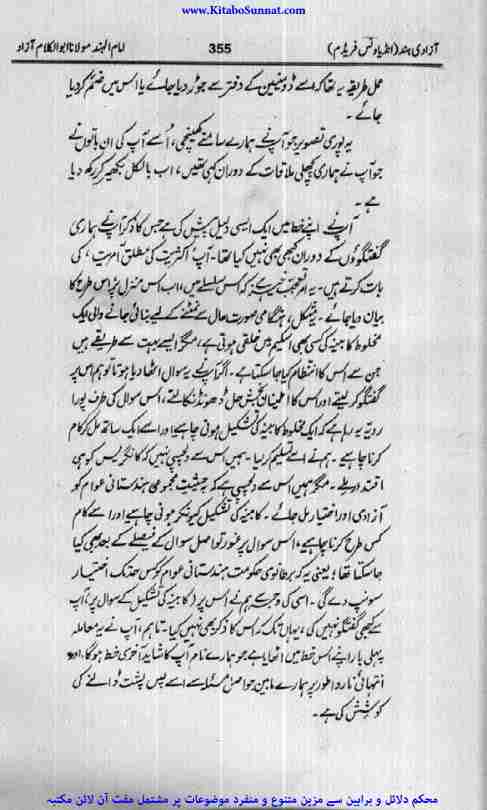 www.KitaboSunnat.com
آزادی ہند (انڈیا ونس فریڈم) 355 امام الہند مولانا ابوالکلام آزاد
عمل طریقہ یہ تھا کہ اسے ڈومینین کے دفتر سے جوڑ دیا جائے یا اس میں ضم کر دیا
جائے ۔
یہ پوری تصویر جو آپ نے ہمارے سامنے کھینچی، اُسے آپ کی ان باتوں نے
جو آپ نے ہماری پچھلی ملاقات کے دوران کہی تھیں، اب بالکل بکھیر کر رکھ دیا
ہے ۔
آپ نے اپنے خط میں ایک ایسی دلیل پیش کی ہے جس کا ذکر آپ نے ہماری
گفتگوؤں کے دوران کبھی بھی نہیں کیا تھا۔ آپ 'اکثریت کی مطلق آمریت' کی
بات کرتے ہیں۔ یہ امر تعجب خیز ہے کہ اس سلسلے میں، اب اس منزل پر اس طرح کا
بیان دیا جائے ۔ یہ مشکل، ہنگامی صورت حال سے نمٹنے کے لیے بنائی جانے والی ایک
مخلوط کابینہ کی کسی بھی اسکیم میں خلقی ہوتی ہے، مگر ایسے بہت سے طریقے ہیں
جن سے اس کا انتظام کیا جا سکتا ہے ۔ اگر آپ نے یہ سوال اٹھا دیا ہوتا تو ہم اس پر
گفتگو کر لیتے اور اس کا اطمینان بخش حل ڈھونڈ نکالتے، اس سوال کی طرف پورا
رویہ یہ رہا ہے کہ ایک مخلوط کابینہ کی تشکیل ہونی چاہیے اور اسے ایک ساتھ مل کر کام
کرنا چاہیے ۔ ہم نے اسے تسلیم کر لیا ۔ ہمیں اس سے دلچسپی نہیں کہ کانگریس کو ہی
اقتدار ملے ۔ مگر ہمیں اس سے دلچسپی ہے کہ بہ حیثیت مجموعی ہندستانی عوام کو
آزادی اور اختیار مل جائے ۔ کابینہ کی تشکیل کیونکر ہونی چاہیے اور اسے کام
کس طرح کرنا چاہیے، اس سوال پر غور تو اصل سوال کے فیصلے کے بعد بھی کیا
جا سکتا تھا؛ یعنی یہ کہ برطانوی حکومت ہندستانی عوام کو کس حد تک اختیار
سونپ دے گی ۔ اسی کی وجہ سے ہم نے اس پر (کابینہ کی تشکیل کے سوال پر) آپ
سے کبھی گفتگو نہیں کی، یہاں تک کہ اس کا ذکر بھی نہیں کیا۔ تاہم، آپ نے یہ معاملہ
پہلی بار اپنے اس خط میں اٹھایا ہے جو ہمارے نام آپ کا شاید آخری خط ہوگا، اور
انتہائی ناروا طور پر ہمارے مابین جو اصل مسئلہ ہے اسے پس پشت ڈالنے کی
کوشش کی ہے ۔
محکم دلائل و براہین سے مزین متنوع و منفرد موضوعات پر مشتمل مفت آن لائن مکتبہ